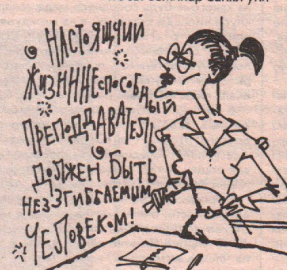 НАСТОЯЩИЙ
ЖИЗННЕСПОСОБНЫЙ
ПРЕПОДДАВАТЕЛЬ
ДОЛЖЕН БЫТЬ
НЕЗЗГИББАЕМЫМ
ЧЕЛОВЕКОМ!